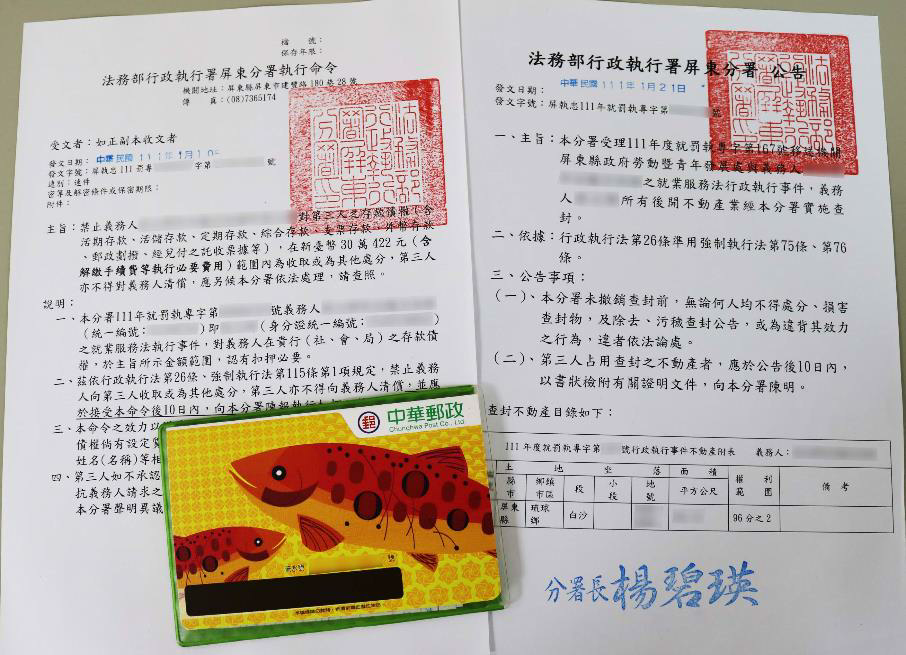 檔　　號：
保存年限：
法務部行政執行署屏東分署執行命令
機關地址：屏東縣屏東市建豐路180巷28號
傳　　真：(08)7365174
受文者：如正副本收文者
發文日期：中華民國111年1月10
發文字號：屏執忠111罰專　字第　號
速別：速件
密等及解密條件或保密期限：
附件：
主旨：禁止義務人　對第三人之存款債權（含
活期存款、活儲存款、定期存款、綜合存款、支票存款、外幣存款
、郵政劃撥、經兌付之託收票據等），在新臺幣30萬422元（含
解繳手續費等執行必要費用）範圍內為收取或為其他處分，第三人
亦不得對義務人清償，應另候本分署依法處理，請查照。
說明：
一、本分署111年就罰執專字第　號義務人
（統一編號：　）即　（身分證統一編號：　）
之就業服務法執行事件，對義務人在貴行（社、會、局）之存款債
權，於主旨所示金額範圍，認有扣押必要。
二、茲依行政執行法第26條、強制執行法第115條第1項規定，禁止義務
人向第三人收取或為其他處分，第三人亦不得向義務人清償，並應
於接受本命令後10日內，向本分署陳報執行
三、本命令之效力以
債權倘有設定質
姓名(名稱)等相
四、第三人如不承認
抗義務人請求之
本分署聲明異議
中華郵政
Chunghwa Post Co., Ltd.
郵
法務部行政執行署屏東分署 公告
發文日期：中華民國111年1月21日
發文字號：屏執忠111年就罰執專字第　號
一、主旨：本分署受理111年度就罰執專字第167號移送機關
屏東縣政府勞動暨青年發展處與義務人
之就業服務法行政執行事件，義務
人　所有後開不動產業經本分署實施查
封。
二、依據：行政執行法第26條準用強制執行法第75條、第76
條。
三、公告事項：
（一）、本分署未撤銷查封前，無論何人均不得處分、損害
查封物，及除去、污穢查封公告，或為違背其效力
之行為，違者依法論處。
（二）、第三人占用查封之不動產者，應於公告後10日內，
以書狀檢附有關證明文件，向本分署陳明。
查封不動產目錄如下：
111年度就罰執專字第　號行政執行事件不動產附表　義務人：
土　地　坐　落　面　積　權利範圍　備考
縣市　鄉鎮市區　段　小段　地號　平方公尺
屏東縣　琉球鄉　白沙　96分之2
分署長楊碧瑛